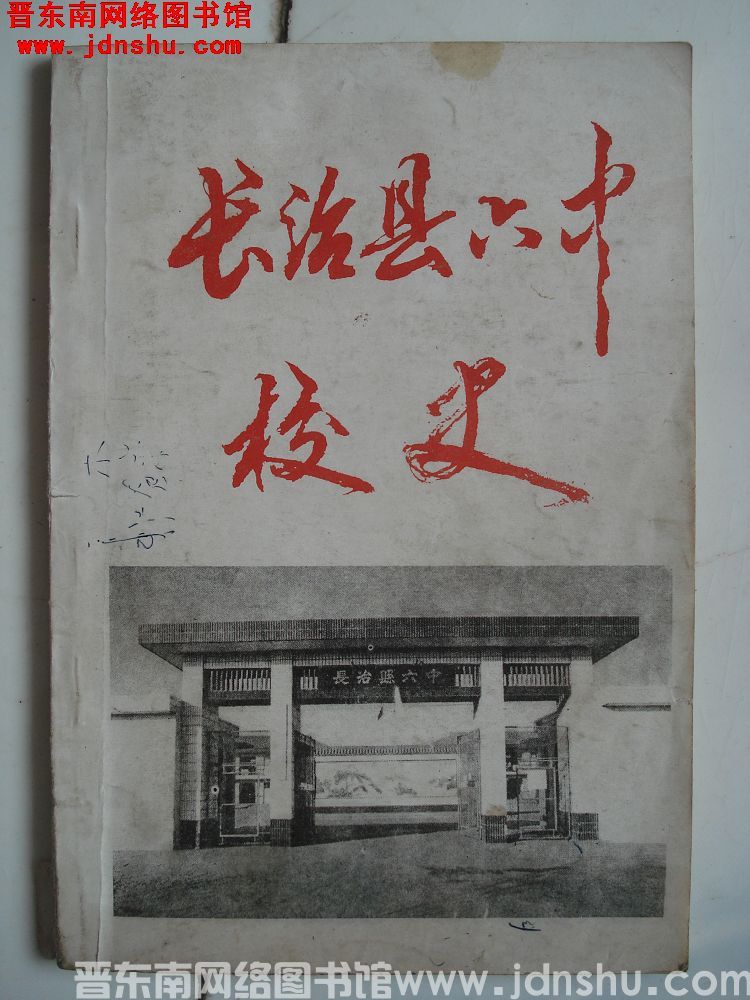 晋东南网络图书馆
www. jdnshu.com
长治县六中
校史
長治縣六中
晋东南网络图书馆www.jdnshu.com